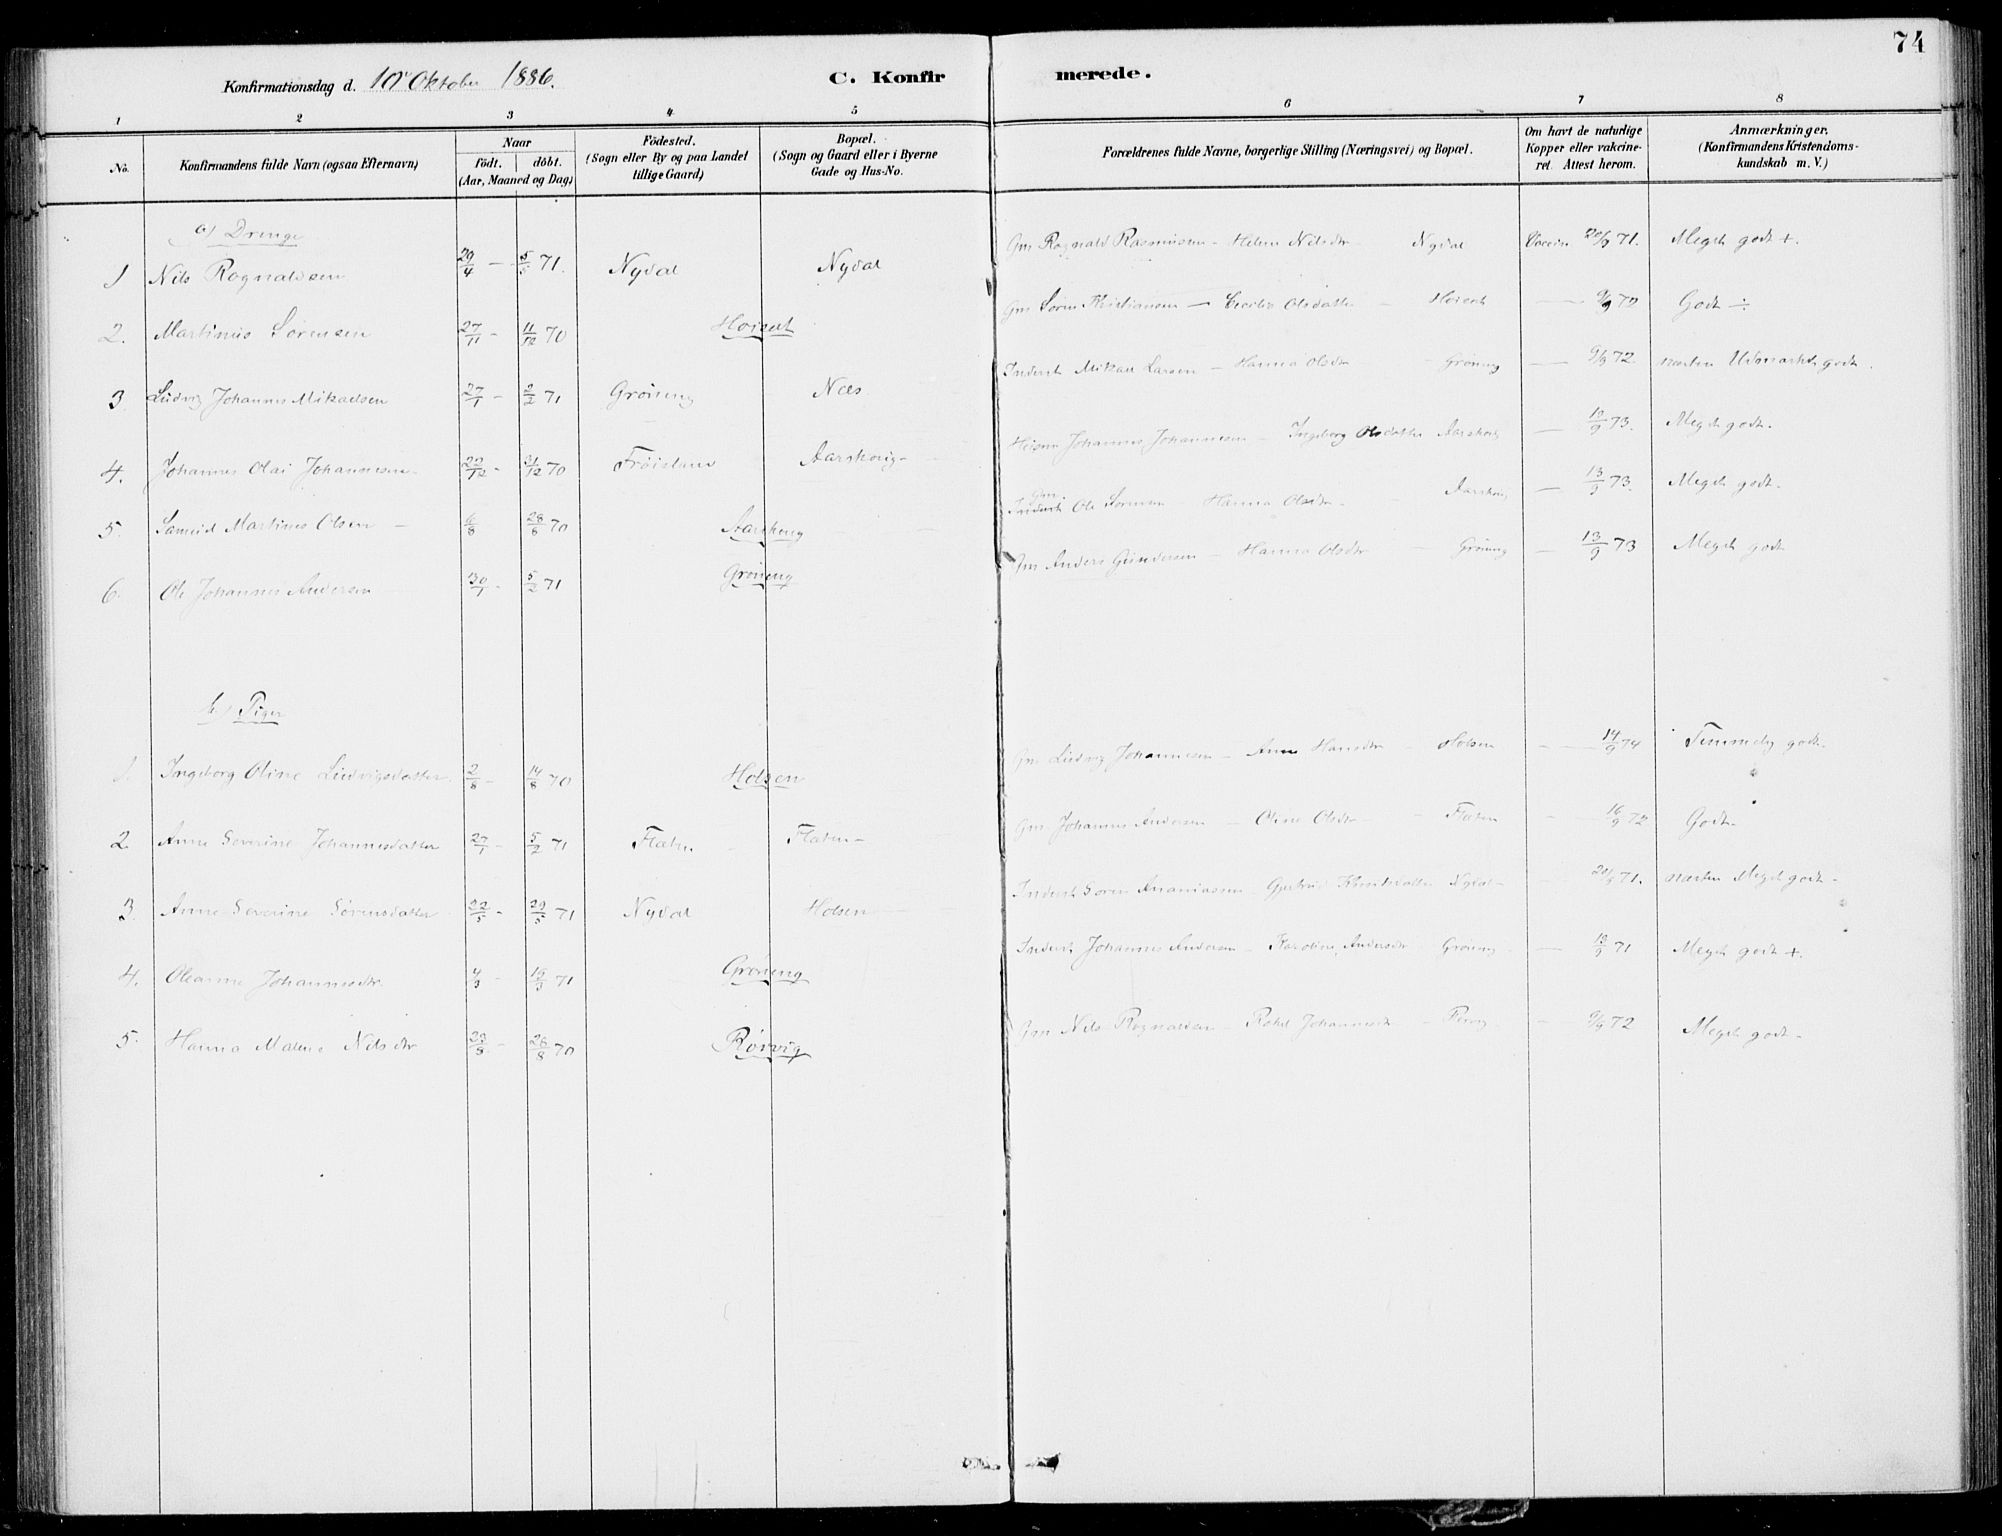 74
Konfirmationsdag d. 10' Oktober 1886.
C. Konfirmerede.
1 2 3 4 5 6 7 8
No. Konfirmandens fulde Navn (ogsaa Efternavn) Naar födt. döbt. (Aar, Maaned og Dag) Födested. (Sogn eller By og paa Landet tillige Gaard) Bopæl. (Sogn og Gaard eller i Byerne Gade og Hus-No. Forældrenes fulde Navne, borgerlige Stilling (Næringsvei) og Bopæl. Om havt de naturlige Kopper eller vakcineret. Attest herom. Anmærkninger. (Konfirmandens Kristendomskundskab m. V.)
a) Drenge
1 Nils Rognaldsen 29/4 - 5/5 71. Nydal Nydal Gm Rognald Rasmussen - Helene Nilsdtr Nydal Vaccin 20/9 71. Meget godt +.
2. Martinus Sörensen 27/11 - 11/12 70 Hoiset Gm Sören Kristiansen - Cecilie Olsdatter - — 9/9 72 Godt ÷
3 Ludvig Johannes Mikaelsen 27/1 - 2/2 71 Gröneng Næs Inderst Mikael Larsen - Hanna Olsdtr - Gröneng — 9/9 72. næsten Udmærket godt.
4. Johannes Olai Johannesen 22/12 - 31/12 70 Fröisland Aarskoug - Johannes Johannesen - Ingeborg Olsdatter Aarskoug — 12/9 73. Meget godt.
5. Samuel Martinus Olsen - 6/8 28/8 70 Aarskoug Gm. Inderst Ole Sörensen Hanna Olsdtr - Aarskoug — 13/9 73. Meget godt.
6. Ole Johannes Andersen 30/1 - 5/2 71 Gröneng Gm Anders Gundersen - Hanna Olsdtr - Gröneng — 13/9 73 Meget godt
b) Piger
1. Ingeborg Oline Ludvigsdatter 2/8 - 14/8 70 Holsen Gm Ludvig Johannesen - Anne Hansdtr - Holsen — 14/9 74 Temmelig godt.
2. Anne Severine Johannesdatter 27/1 - 5/2 71 Flaten - Flaten - Gm Johannes Andersen - Oline Olsdtr - Flaten - 16/9 72 Godt
3. Anne Severine Sörensdatter 22/5 - 29/5 71 Nydal Holsen Inderst Sören Ananiassen - Gjertrud Knutsdatter Nydal - 20/9 71. næsten Meget godt -
4. Oleanne Johannesdtr 4/3 - 19/3 71 Gröneng Inderst Johannes Andersen - Karoline Andersdtr Gröneng — 12/9 71 Meget godt +.
5. Hanna Malene Nilsdtr 22/8 - 28/8 70 Rörvig Gm Nils Rognaldsen - Rakel Johannesdtr - - 9/9 72 Meget godt -